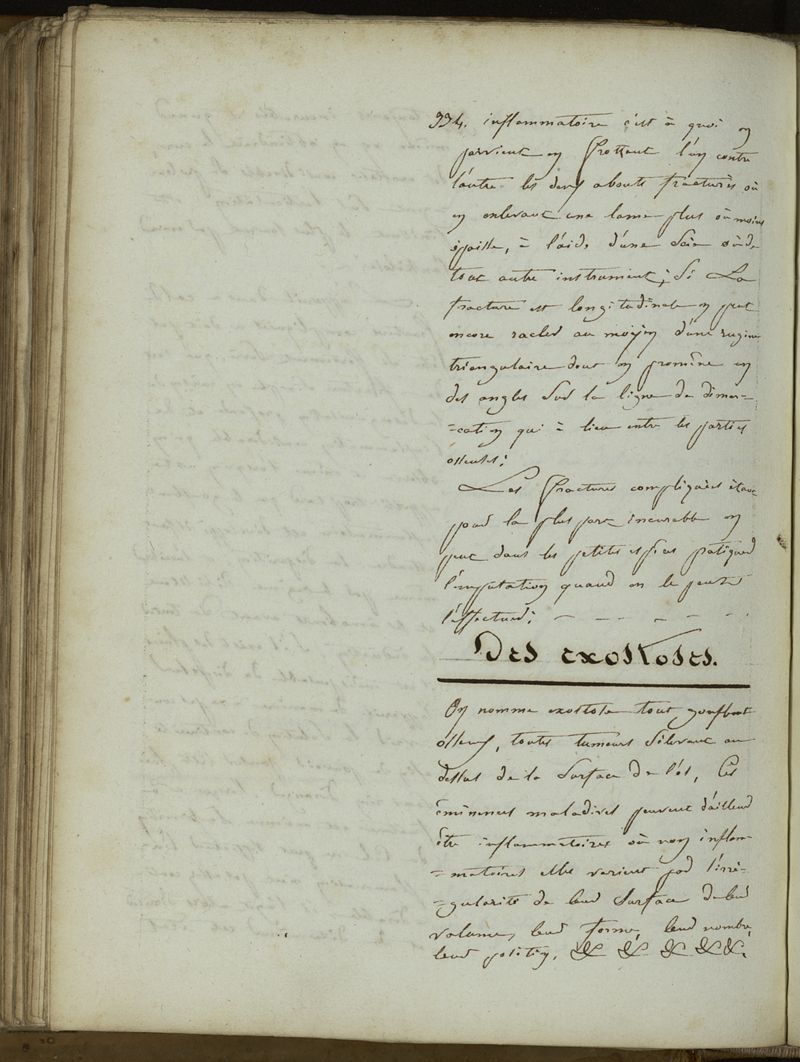 334. inflammatoire c'est à quoi on
parvient en frottant l'un contre
l'autre les deux abouts fracturés où
en enlevant une lame plus où moins
épaisse, à l'aide d'une Scie où de
tout autre instrument; Si La
fracture est longitudinale on peut
encore racler au moyen d'une rugine
triangulaire dont on promène un
des angles Sur la ligne de démar=
=cation qui à lieu entre les parties
osseuses;
Les fractures compliquées étant
pour la plus part incurable on
peut dans les petites espèces pratiquer
l'amputation quand on le peut
l'éffectuer; — — — — —
Des exostoses.
On nomme exostose tout gonflement
osseux, toutes tumeurs S'élevant au
dessus de la Surface de l'os, Ces
éminences maladives peuvent d'ailleurs
être inflammatoires où non inflam=
=matoires elles varient par l'irré=
=gularité de leur Surface de leur
volume, leur forme, leur nombre,
leur position, & & & & &.